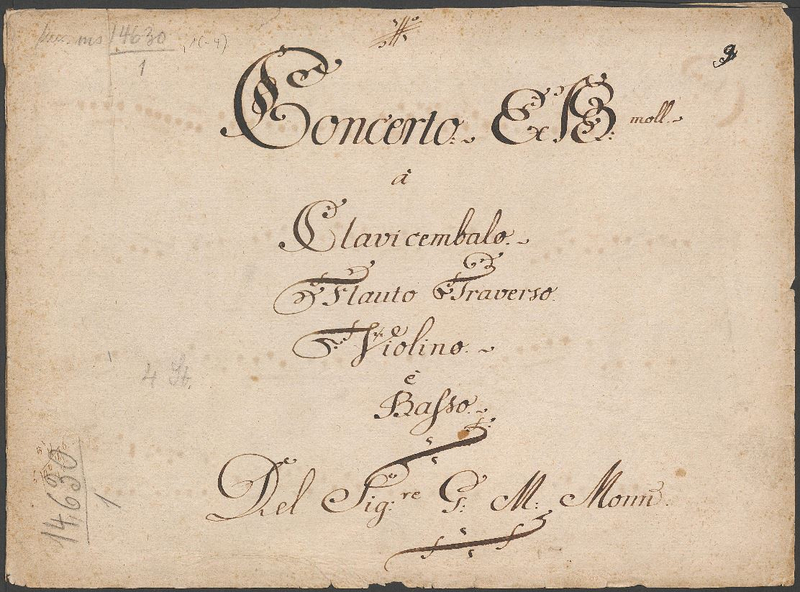 Mus. ms 14630
1
Concerto. Ex B: moll.
â
Clavicembalo.
Flauto Traverso.
Violino.
è
Basso.
Del Sig:re G: M: Monn.
4 St.
14630
1